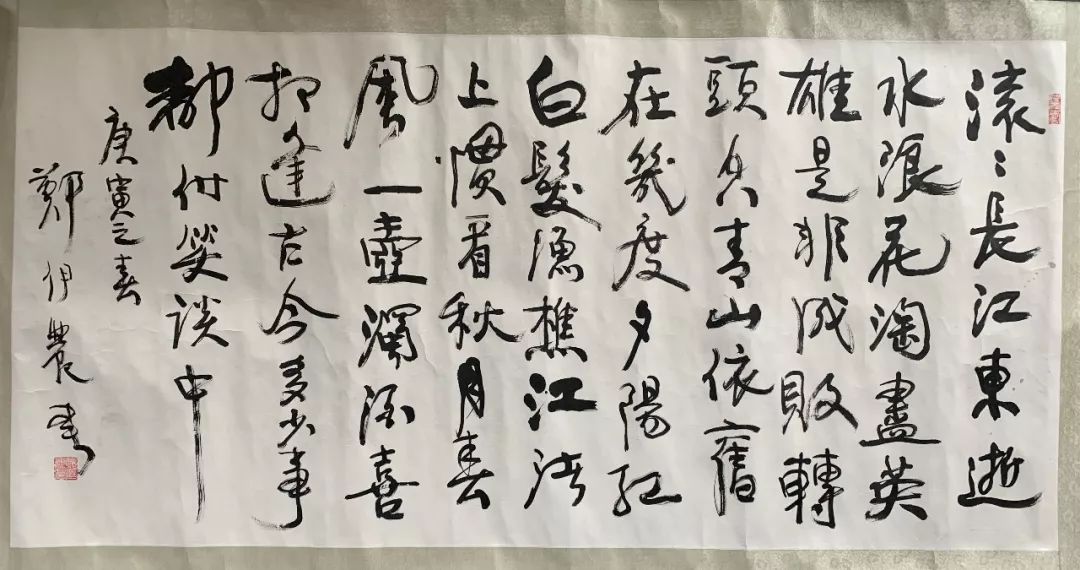 滾〻長江東逝
水浪花淘盡英
雄是非成敗轉
頭空青山依舊
在幾度夕陽紅
白髮漁樵江渚
上慣看秋月春
風一壺濁酒喜
相逢古今多少事
都付笑談中
庚寅之春
鄭伊農書